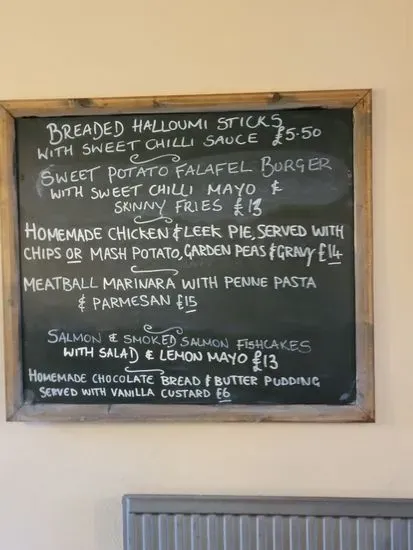 BREADED HALLOUMI STICKS
WITH SWEET CHILLI SAUCE £5.50
SWEET POTATO FALAFEL BURGER
WITH SWEET CHILLI MAYO &
SKINNY FRIES £13
HOMEMADE CHICKEN & LEEK PIE, SERVED WITH
CHIPS OR MASH POTATO, GARDEN PEAS & GRAVY £14
MEATBALL MARINARA WITH PENNE PASTA
& PARMESAN £15
SALMON & SMOKED SALMON FISHCAKES
WITH SALAD & LEMON MAYO £13
HOMEMADE CHOCOLATE BREAD & BUTTER PUDDING
SERVED WITH VANILLA CUSTARD £6